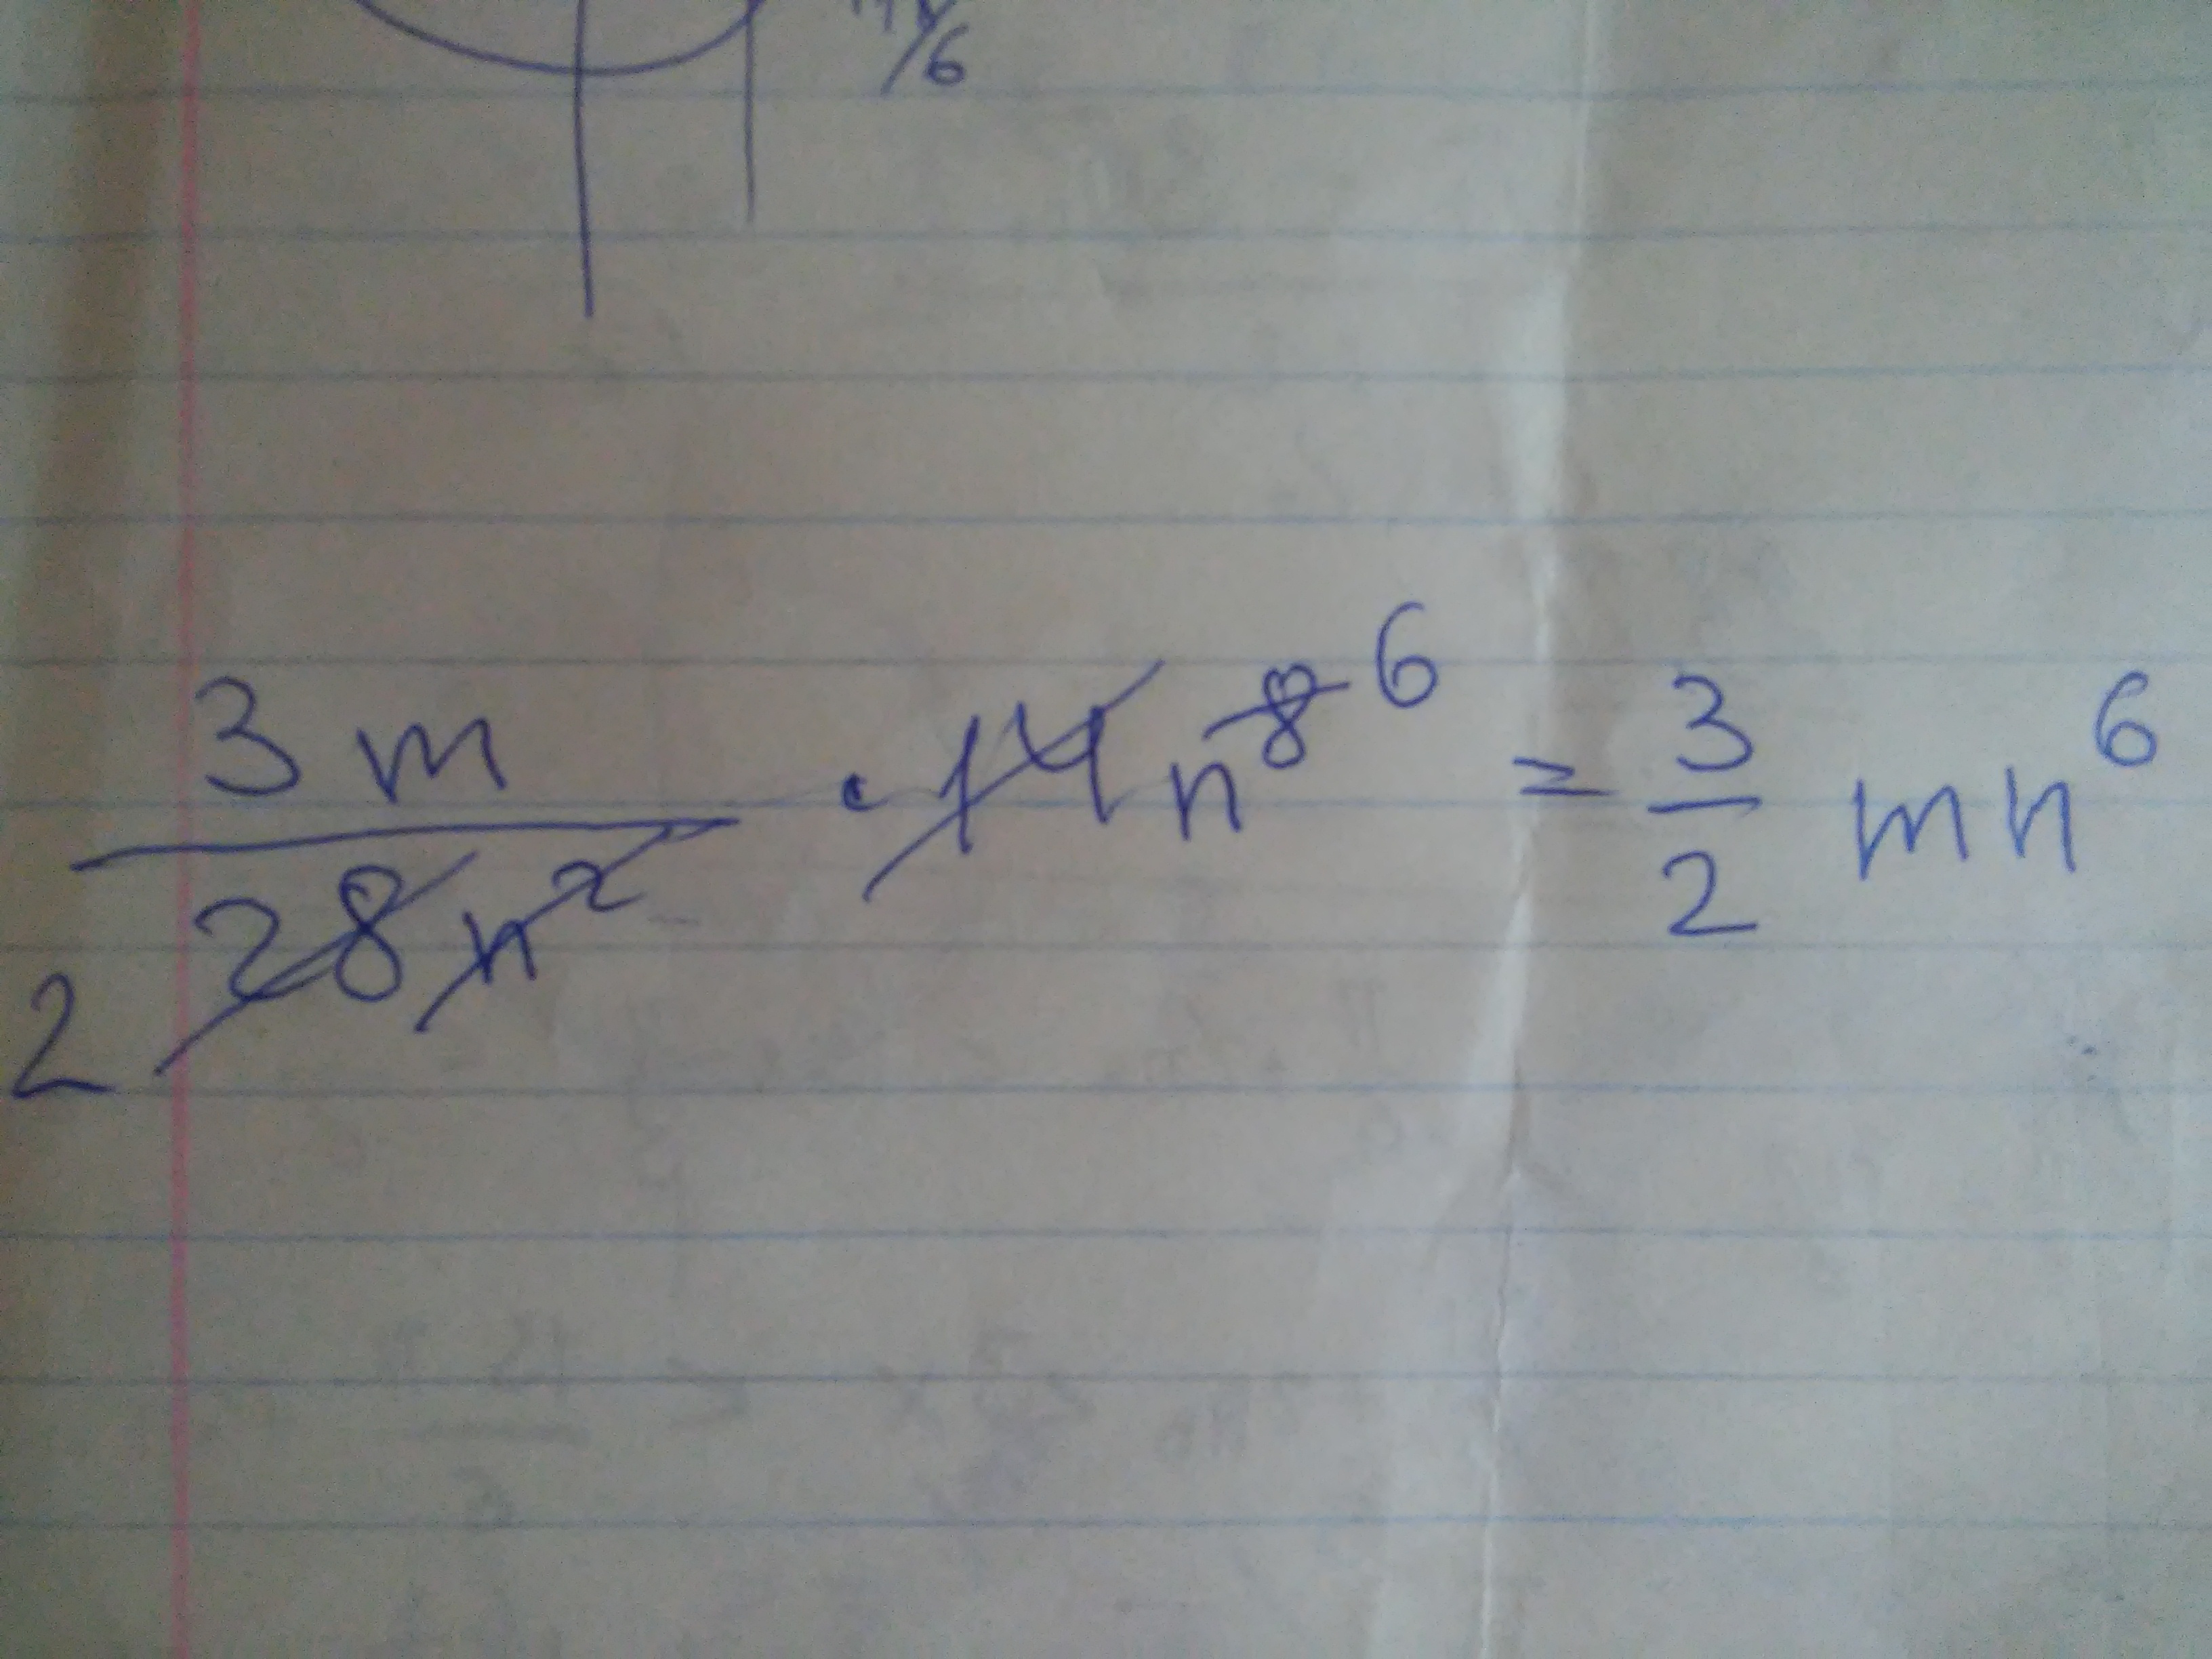 3m / 2 28n² · 14n⁸ ⁶ = 3/2 mn⁶